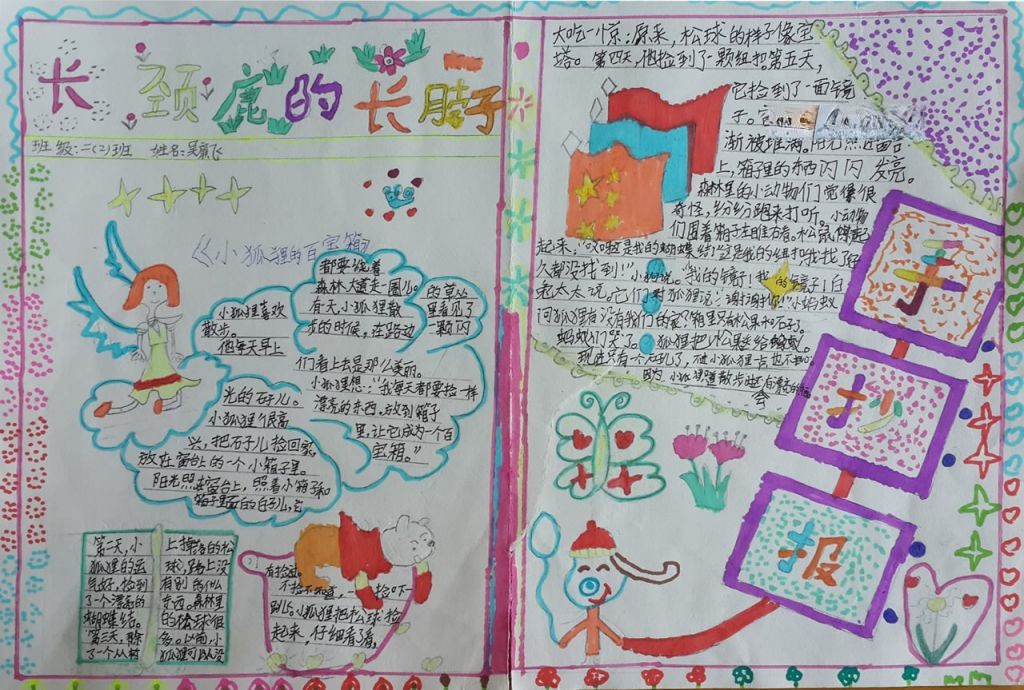 长颈鹿的长脖子
班级:二(2)班 姓名:吴
飞
《小狐狸的百宝箱
小狐狸喜欢
散步。
他每天早上
都要绕着
森林大道走一圈儿。
有天小狐狸散
步的时候,在路边
的草丛
里看见了
一颗闪
光的石子儿。
小狐狸很高
兴,把石子儿捡回家,
放在窗台上的一个小箱子里。
阳光照在窗台上,照着小箱子
箱子里面的石子儿,它
们看上去是那么美丽。
小狐狸想:“我每天都要捡一样
漂亮的东西,放到箱子
里,让它成为一个百
宝箱。”
第二天,小
狐狸的运
气好,捡到
了一个漂亮的
蝴蝶结。
第三天,除
了一个从树
上掉落的松
球,路上没
有别的什么
东西。森林里
的松球很
多。以前小
狐狸可从没
有捡过。
不捡不知道,一捡吓一
小狐狸把松球捡
起来,仔细看了看,
大吃一惊:原来,松球的样子像宝
塔。第四天,他捡到了一颗纽扣。第五天,
它捡到了一面镜
子。
渐被堆满。阳光照进窗台
上,箱子里的东西闪闪发亮。
森林里的小动物们觉得很
奇怪,纷纷跑来打听。小动物
们围着箱子
松鼠
起来:“哎呀这是我的蝴蝶结!这是我的纽扣我找了好
久都没找到!”小狗说。“我的镜子!我的镜子!”白
兔太太说。它们对狐狸说:“谢谢
小蚂蚁
问狐狸有没有我们的
箱里只有松果和石子。
蚂蚁们哭了。小狐狸把松果送给蚂蚁。
现在只有一个石子儿了,但小狐狸一点也不
因为,小狐狸
散步
手
抄
报